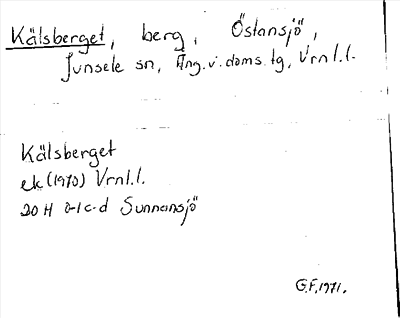 Kälsberget, berg, Östansjö,
Junsele sn, Ång.v.doms.tg, Vrnl.l.
Kälsberget
ek (1970) Vrnl.l.
20H 0-1c-d Sunnansjö
G.F. 1971.